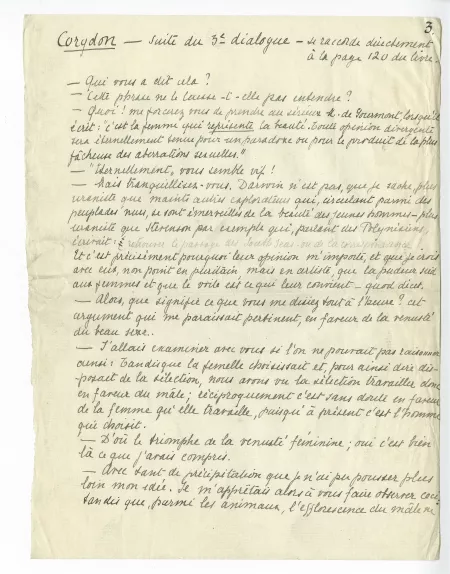 3.
Corydon — suite du 3e dialogue — se raccorde directement
à la page 120 du livre.
— Qui vous a dit cela ?
— Cette phrase ne le laisse-t-elle pas entendre ?
— Quoi ! me forcez vous de prendre au sérieux R. de Gourmont, lorsqu'il
écrit : "c'est la femme qui représente la beauté. Toute opinion divergente
sera éternellement tenue pour un paradoxe ou pour le produit de la plus
fâcheuse des aberrations sexuelles."
— "Éternellement" vous semble vif !
— Mais tranquillisez-vous. Darwin n'est pas, que je sache, plus
uraniste que maints autres explorateurs qui, circulant parmi des
peuplades nues, se sont émerveillés de la beauté des jeunes hommes — plus
uraniste que Stevenson par exemple qui, parlant des Polynésiens,
écrivait : le passage des South Seas ou de la correspondance
Et c'est précisément pourquoi leur opinion m'importe, et que je crois
avec eux, non point en puritain mais en artiste, que la pudeur sied
aux femmes et que le voile est ce qui leur convient — quod decet.
— Alors, que signifie ce que vous me disiez tout à l'heure ? cet
argument qui me paraissait pertinent, en faveur de la venusté
du beau sexe.
— J'allais examiner avec vous si l'on ne pouvait pas raisonner
ainsi : Tandis que la femelle choisissait et, pour ainsi dire dis-
posait de la sélection, nous avons vu la sélection travailler donc
en faveur du mâle ; réciproquement c'est sans doute en faveur
de la femme qu'elle travaille, puisqu'à présent c'est l'homme
qui choisit.
— D'où le triomphe de la venusté féminine ; oui c'est bien
là ce que j'avais compris.
— Avec tant de précipitation que je n'ai pu pousser plus
loin mon idée. Je m'apprêtais alors à vous faire observer ceci
tandis que, parmi les animaux, l'efflorescence du mâle ne